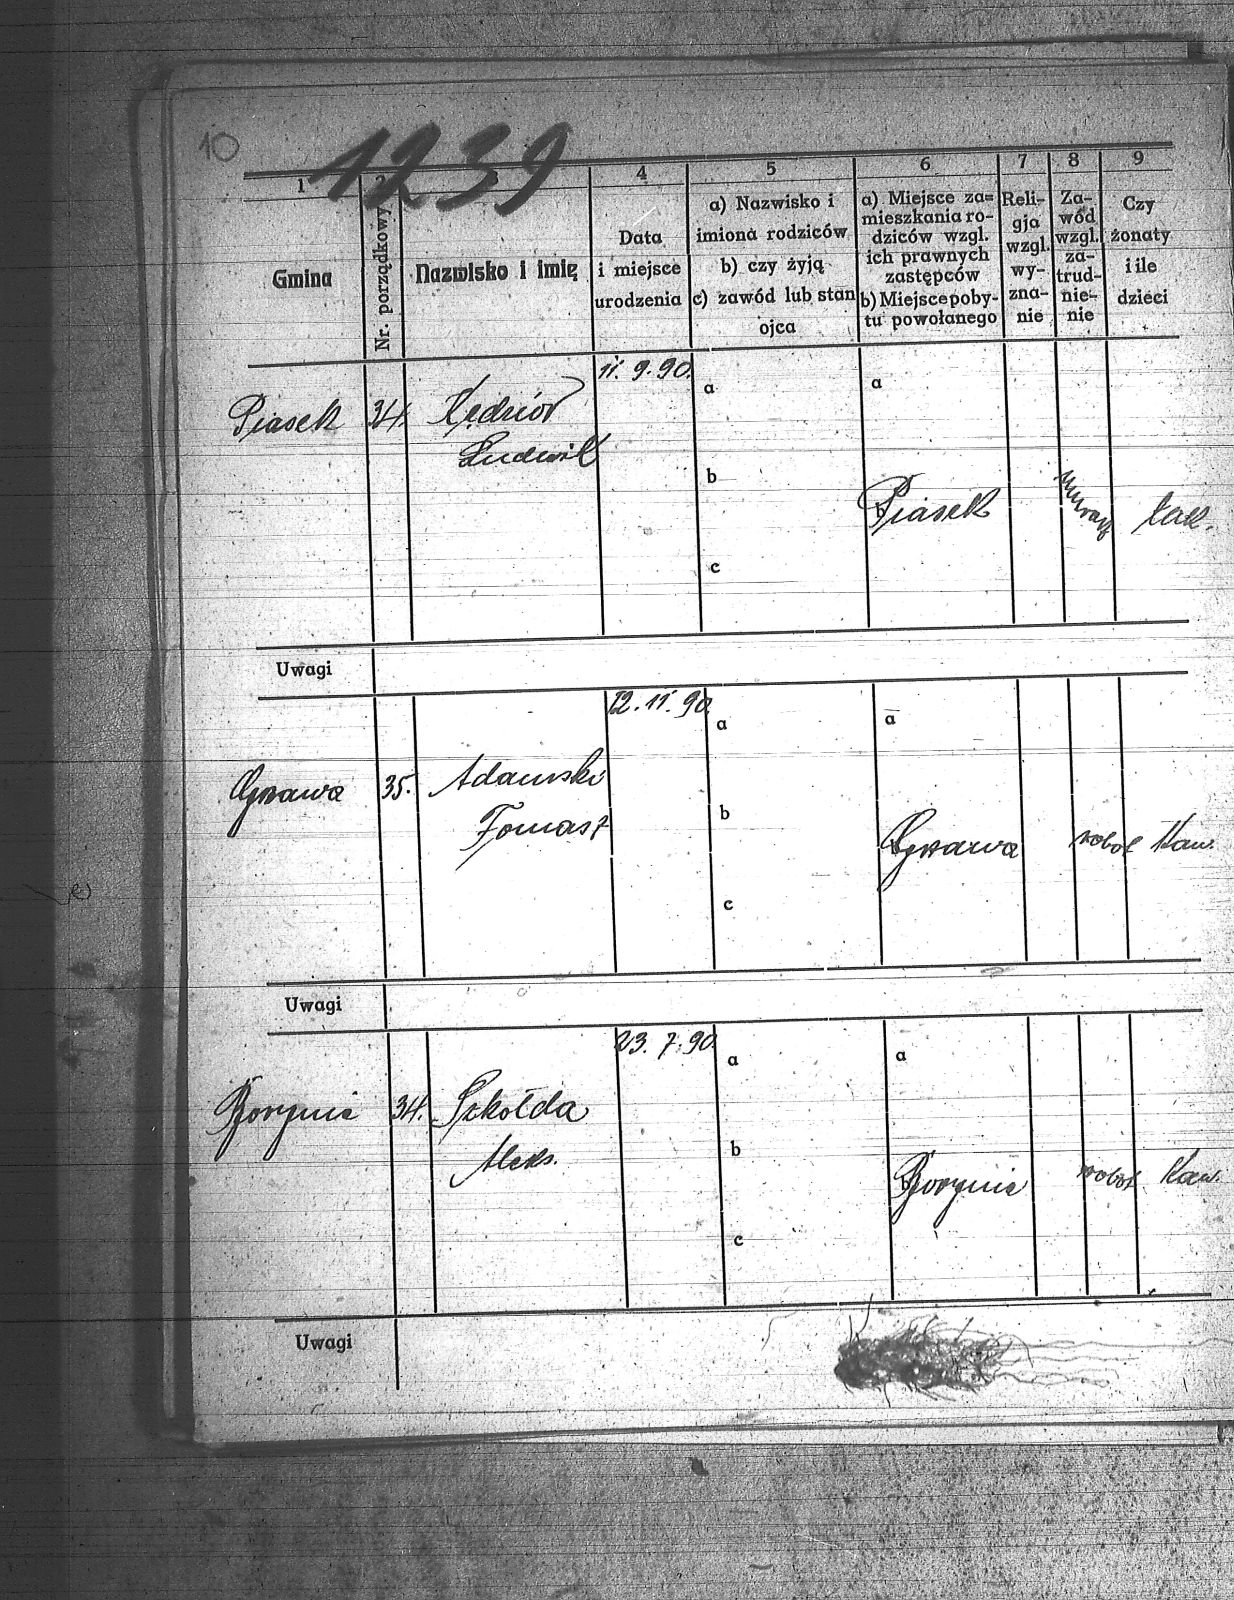 10
1239
1 2 3 4 5 6 7 8 9
Gmina
Nr. porządkowy
Nazwisko i imię
Data
i miejsce
urodzenia
a) Nazwisko i
imiona rodziców
b) czy żyją
c) zawód lub stan
ojca
a) Miejsce za=
mieszkania ro-
dziców wzgl.
ich prawnych
zastępców
b) Miejsce poby-
tu powołanego
Reli-
gja
wzgl.
wy-
zna-
nie
Za-
wód
wzgl.
za-
trud-
nie-
nie
Czy
żonaty
i ile
dzieci
11. 9. 90.
Piasek 34. Kędzior
Ludwik
a
b
c
a
b
Piasek
Uwagi
12. 11. 90.
35. Adamski
Tomasz
a
b
c
a
robot Kaw.
Uwagi
23. 7. 90.
Borynia 34. Szkołda
Aleks.
a
b
c
a
Borynia robot Kaw.
Uwagi